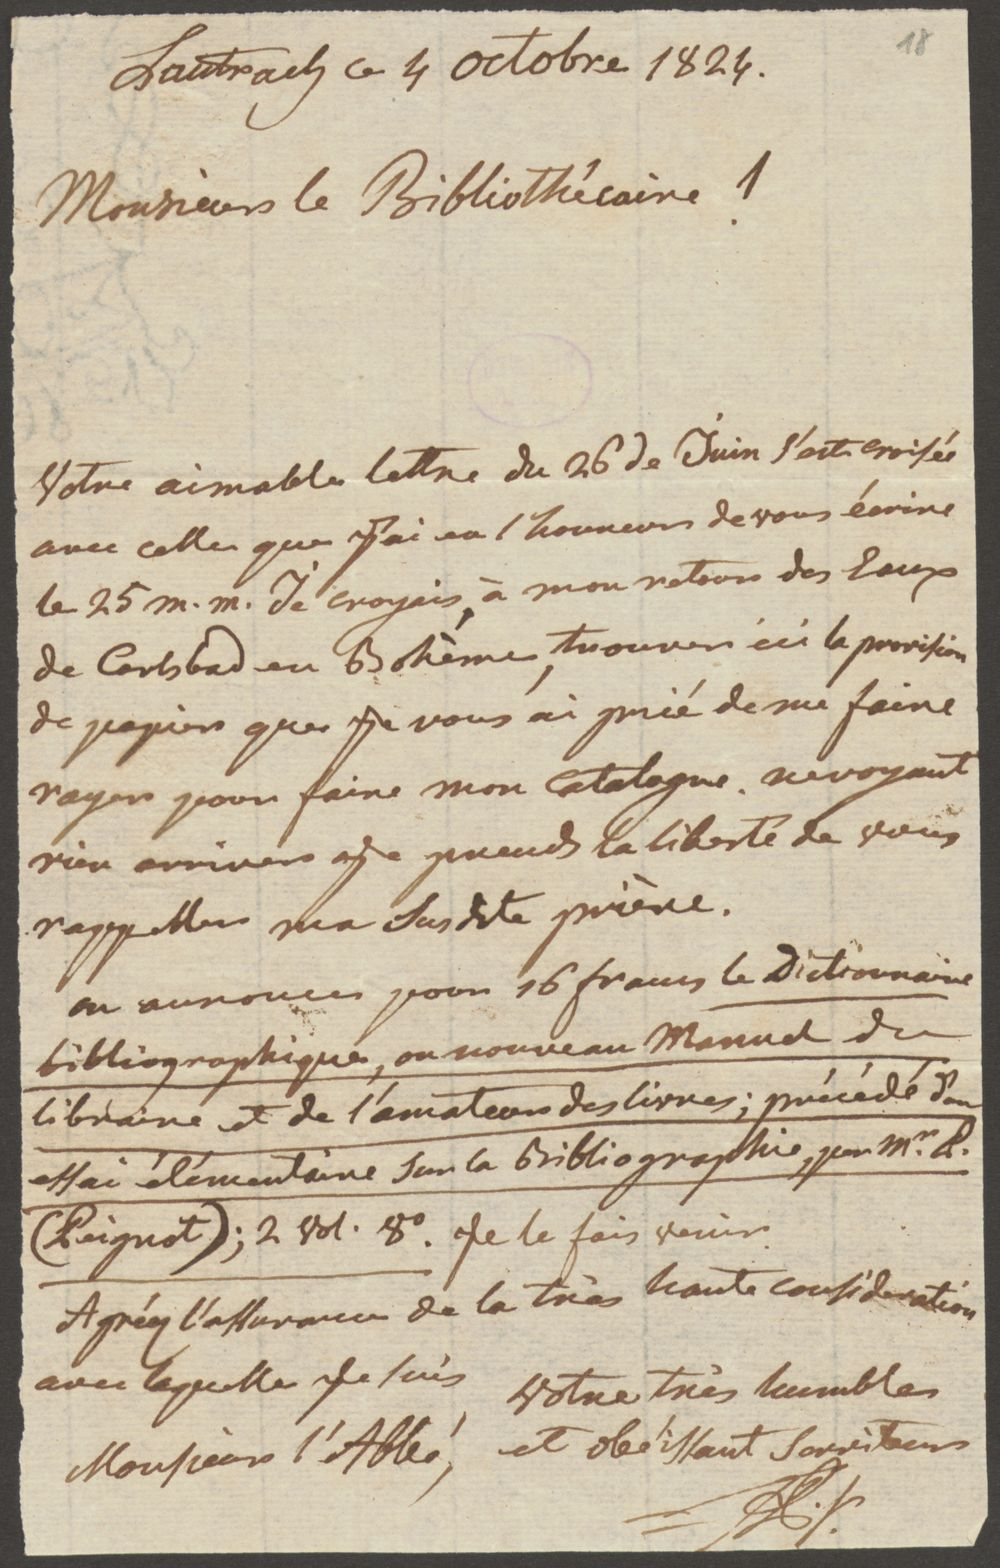 18
Lautrach ce 4 octobre 1824.
Monsieur le Bibliothécaire !
Votre aimable lettre du 26 de Juin s'est croisée
avec celle que j'ai eu l'honneur de vous écrire
le 25 m. m. Je croyais, à mon retour des Eaux
de Carlsbad en Bohème, trouver ici la provision
de papier que je vous ai prié de me faire
rayer pour faire mon Catalogue. ne voyant
rien arriver je prends la liberté de vous
rappeller ma susdite prière.
on annonce pour 16 francs le Dictionnaire
bibliographique, ou nouveau Manuel du
libraire et de l'amateur des livres; précédé d'un
essai élémentaire sur la Bibliographie, par Mr. P.
(Peignot); 2 Vol. 8°. Je le fais venir.
Agréez l'assurance de la très haute considération
avec laquelle je suis
Monsieur l'Abbé,
Votre très humble
et obéissant Serviteur